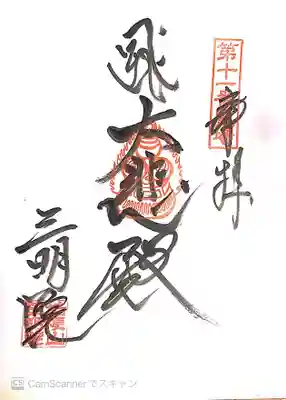 第十一
奉拝
大悲殿
三明院
CS CamScannerでスキャン